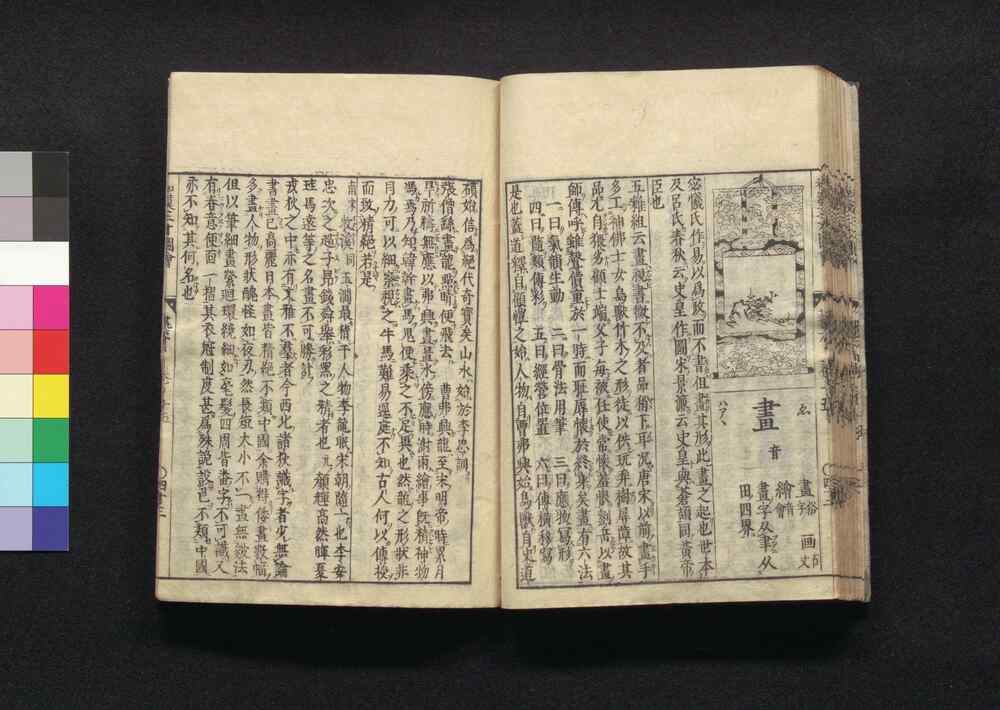 畫
音
ゑ
畫 俗 画
繪 會
畫字从聿从
田四界
宓犧氏作易以爲政而不書但畫其形此畫之起也世本
及呂氏春秋云史皇作圖宋景濂云史皇與蒼頡同黄帝
臣也
五雜組云畫視書微不及者品稍下耳况唐宋以前畫手
多工神佛士女鳥獸竹木之形徒以供玩弄樹屏障故其
品尤自猥劣顧士端父子每被任使常懷羞恨劉岳以畫
師傳呼雖聲價重於一時而耻辱懷於終身矣畫有六法
一曰氣韻生動 二曰骨法用筆 三曰應物寫形
四曰隨類傳彩 五曰經營位置 六曰傳模移寫
是也蓋道釋自顧愷之始人物自曹弗興始鳥獸自史道
碩始信爲絶代奇寳矣山水始於李思訓
張僧繇畫龍點睛便飛去 曹弗興龍至宋明帝時累月
旱祈禱無應以弗興畫置水傍應時澍雨繪事既精神物
馮焉乃知韓幹畫馬鬼使乘之不足異也然龍之形狀非
目力可以細察視之牛馬難易逕庭不知古人何以便授
而致精絶若是
牧溪 玉澗最精于人物李龍眠宋朝隨一也李安
忠次之趙子昂錢舜舉彩黑之精者也 顔輝高然暉夏
珪馬遠筆之名畫不可勝計
戎狄之中亦有文雅不羣者今西北諸狄識字者少無論
書畫已高麗日本畫皆精絶不類中國余購得倭畫數幅
多畫人物形狀醜怪如夜叉然長短大小不一畫無皴法
但以筆細畫縈廻環繞細如毫髮四周皆番字不可識又
有春意便面一摺其衣服制度甚爲殊詭設色已不類中國
亦不知其何名也